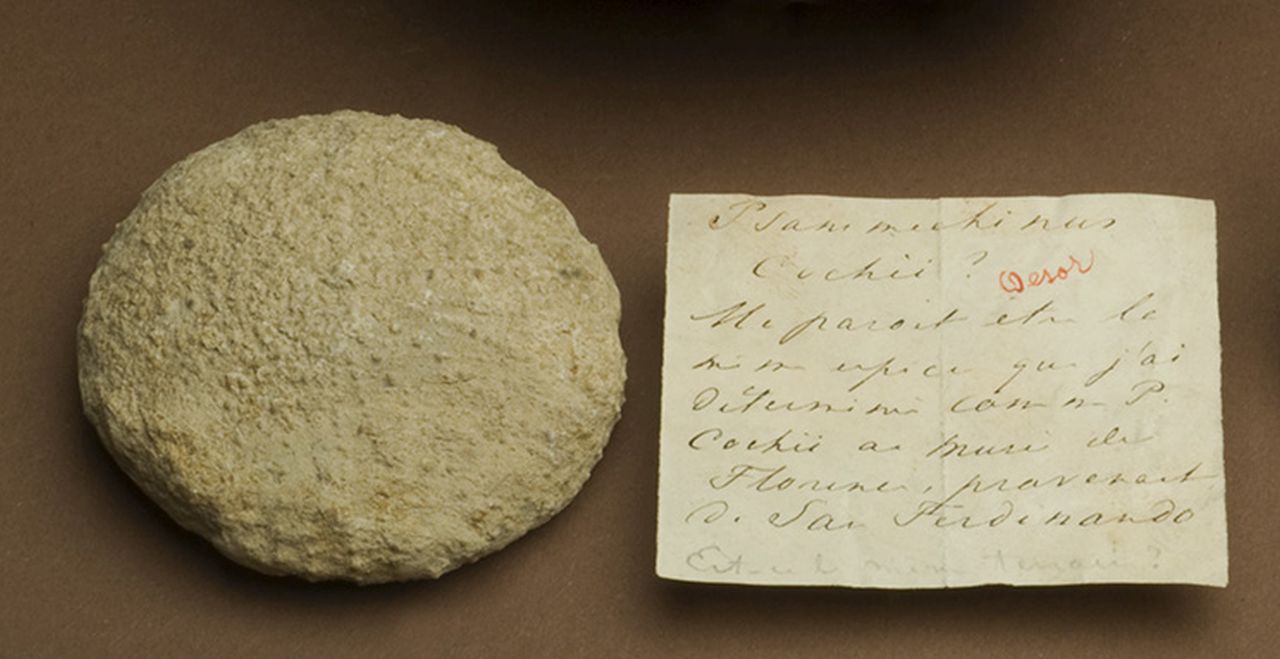 Psammechinus
Cochii ? Desor
Me paroit etre la
meme espece que j'ai
determiné comme P.
Cochii au musé de
Florence, provenant
de San Ferdinando
Est-ce le meme terrain ?